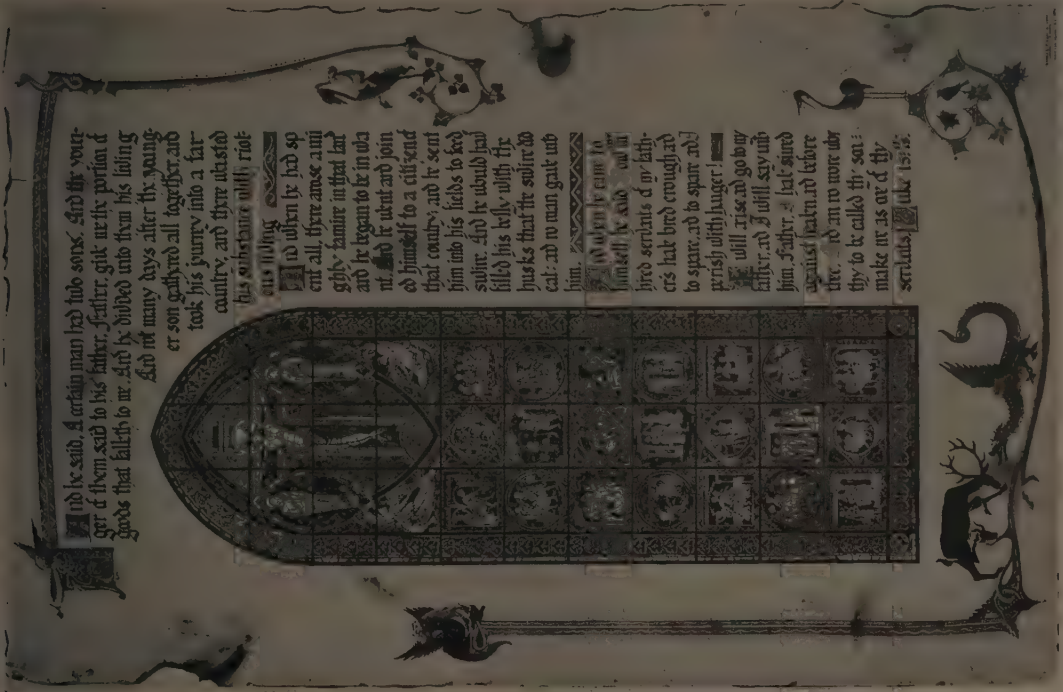 And he said, A certain man had two sons. And the youn-
ger of them said to his father, Father, give me the portion of
goods that falleth to me. And he divided unto them his living
And not many days after the young-
er son gathered all together and
took his journey into a far
country, and there wasted
his substance with riot-
ous living
And when he had sp
ent all, there arose a mi
ghty famine in that land
and he began to be in wa
nt. And he went and join
ed himself to a citizen of
that country; and he sent
him into his fields to feed
swine. And he would hav
filled his belly with the
husks that the swine did
eat: and no man gave unto
him.
And when he came to
himself, he said,
hired servants of my fath-
er's have bread enough and
to spare, and I
perish with hunger!
I will arise and go to my
father, and I will say unto
him, Father, I have sinned
against heaven, and before
thee, And am no more wor
thy to be called thy son:
make me as one of thy
servants. Luke